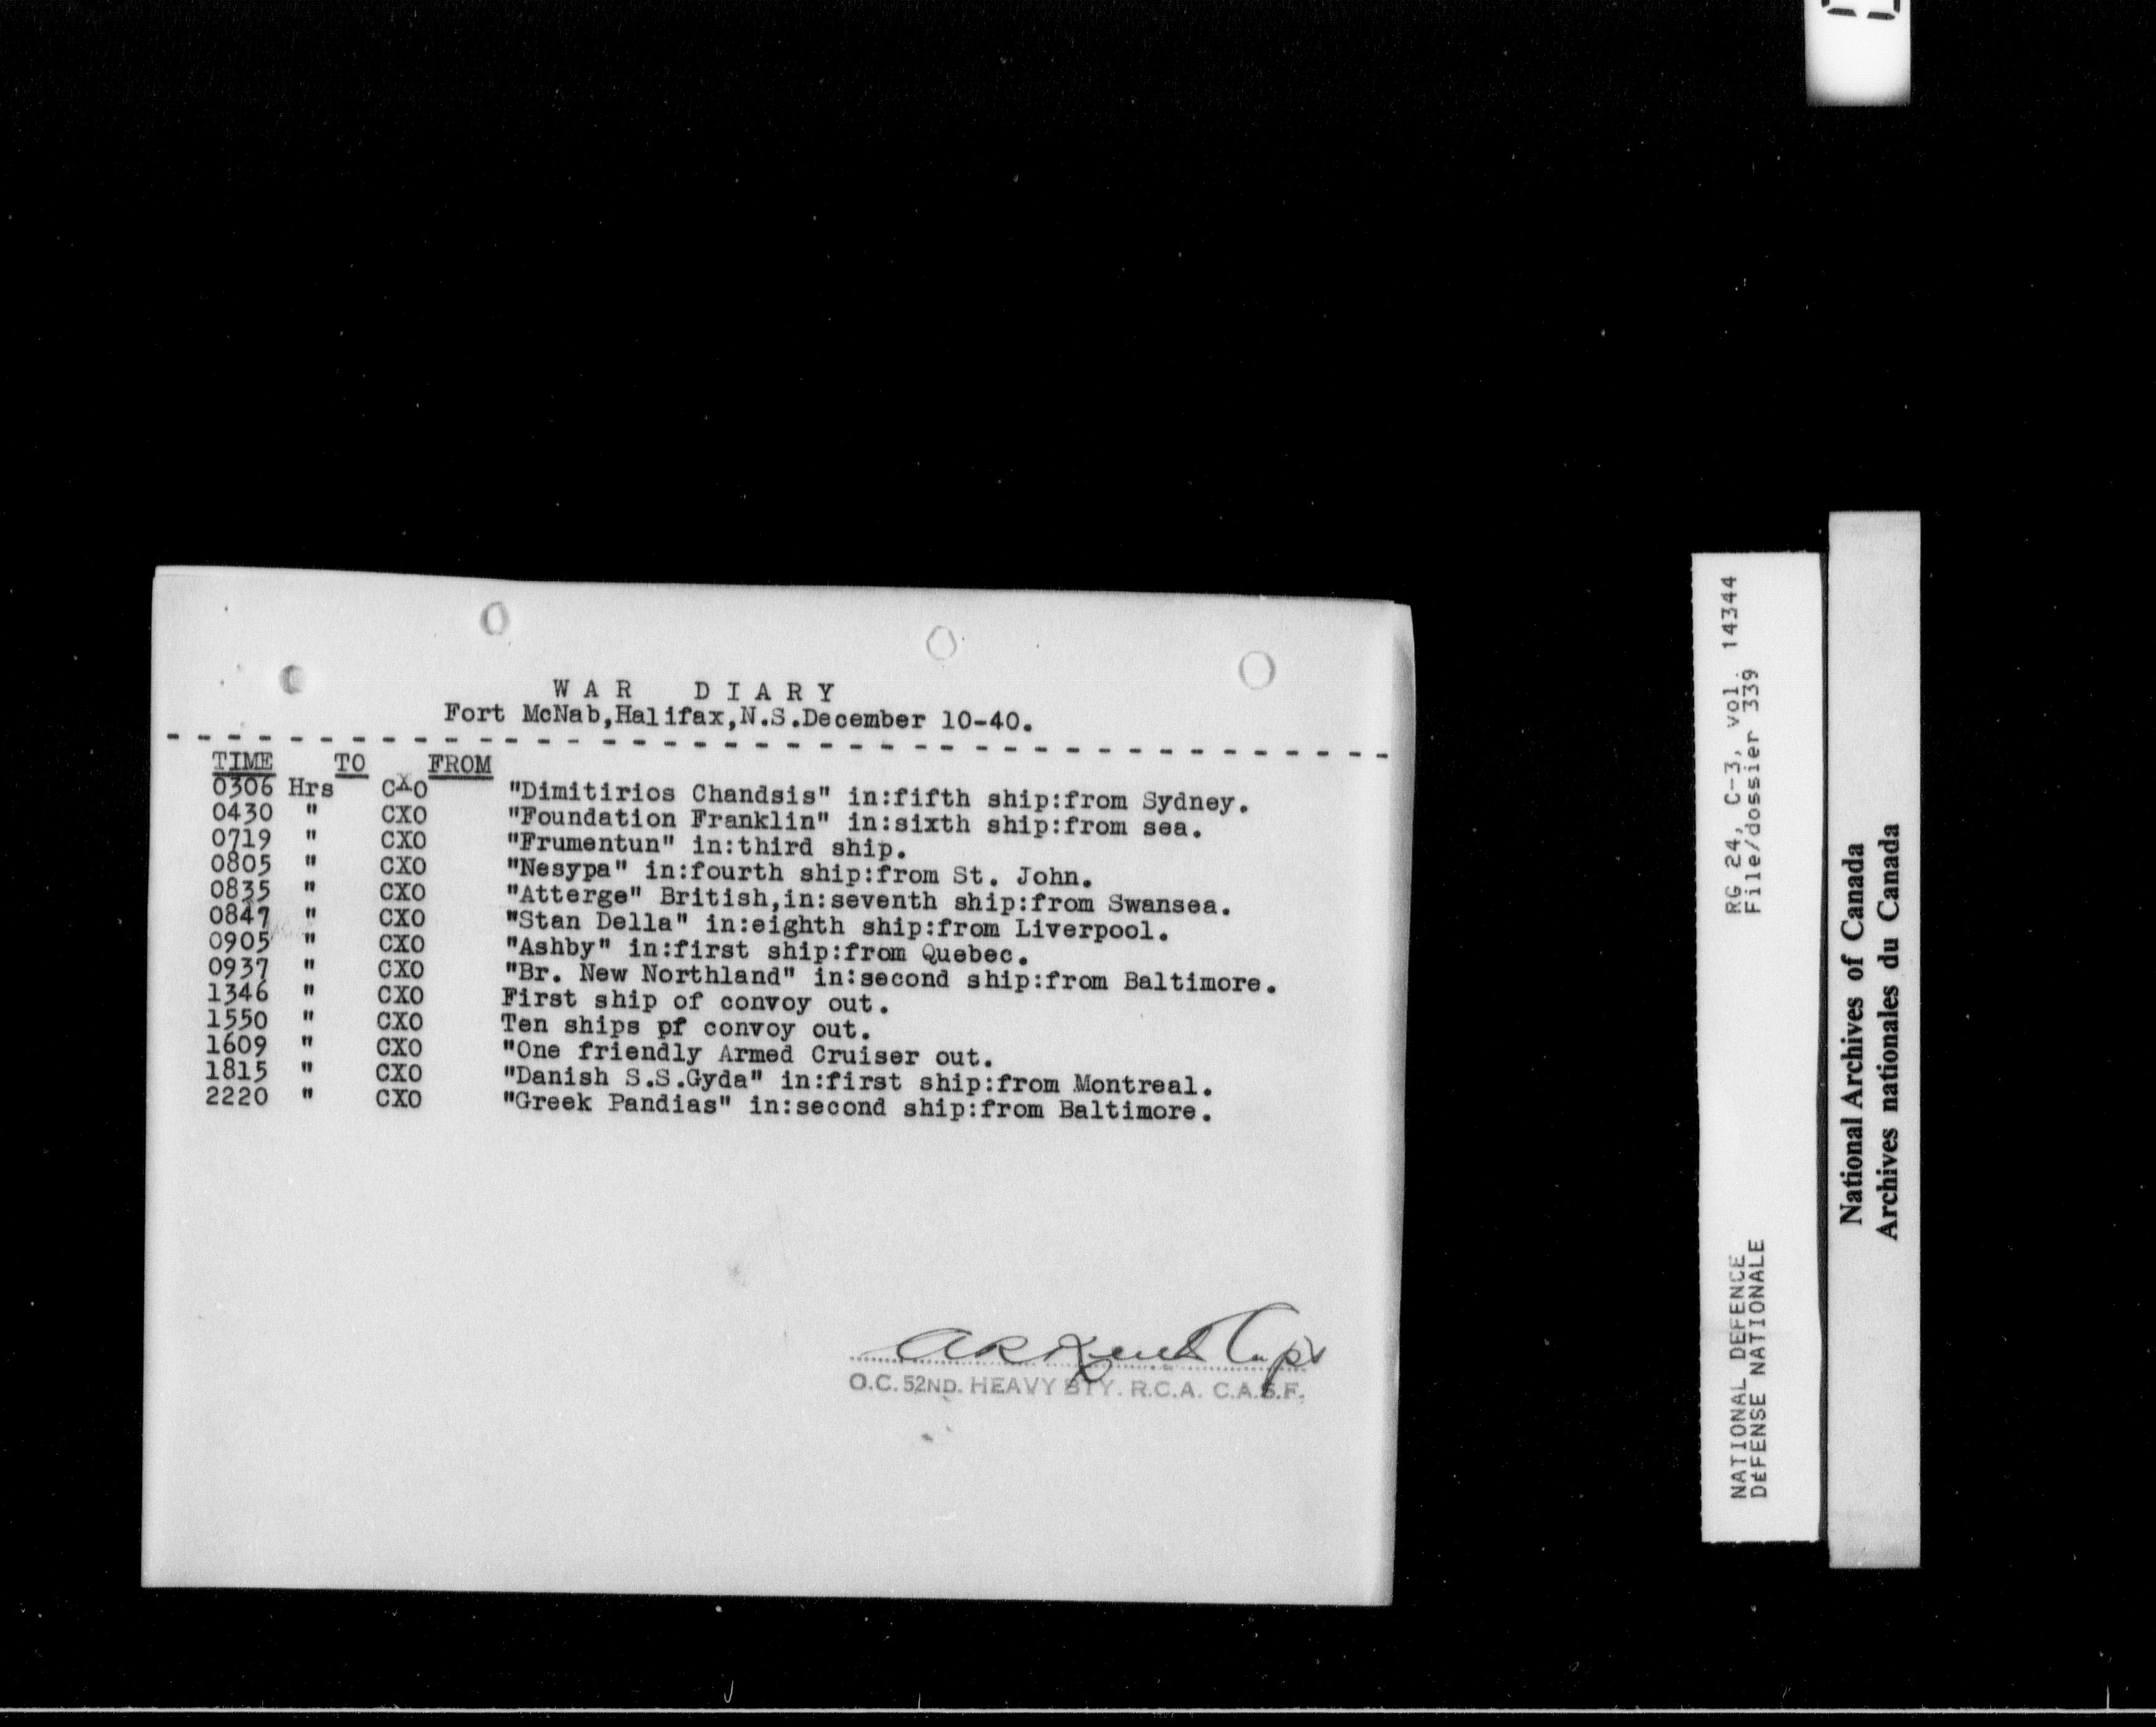 WAR DIARY
Fort McNab,Halifax,N.S.December 10-40.
TIME TO FROM
0306 Hrs CXO "Dimitirios Chandsis" in:fifth ship:from Sydney.
0430 " CXO "Foundation Franklin" in:sixth ship:from sea.
0719 " CXO "Frumentun" in:third ship.
0805 " CXO "Nesypa" in:fourth ship:from St. John.
0835 " CXO "Atterge" British,in:seventh ship:from Swansea.
0847 " CXO "Stan Della" in:eighth ship:from Liverpool.
0905 " CXO "Ashby" in:first ship:from Quebec.
0937 " CXO "Br. New Northland" in:second ship:from Baltimore.
1346 " CXO First ship of convoy out.
1550 " CXO Ten ships pf convoy out.
1609 " CXO "One friendly Armed Cruiser out.
1815 " CXO "Danish S.S.Gyda" in:first ship:from Montreal.
2220 " CXO "Greek Pandias" in:second ship:from Baltimore.
O.C. 52ND. HEAVY BTY. R.C.A. C.A.S.F.
RG 24, C-3, vol. 14344
File/dossier 339
NATIONAL DEFENCE
DÉFENSE NATIONALE
National Archives of Canada
Archives nationales du Canada